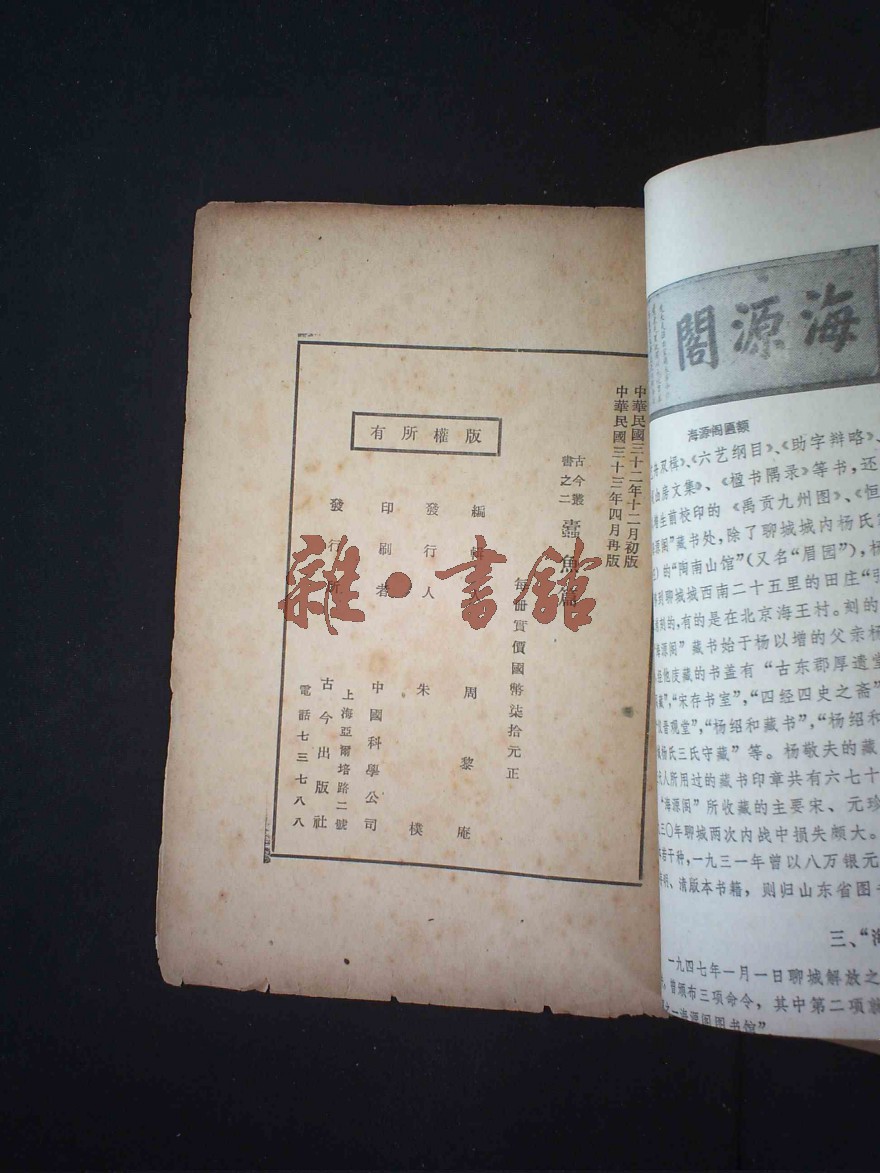 中華民國三十二年十二月初版
中華民國三十三年四月再版
古今叢
書之二
蠹魚篇
每冊實價國幣柒拾元正
版權所有
編輯
周黎庵
發行人
朱樸
印刷者
中國科學公司
發行所
上海亞爾培路二號
古今出版社
電話七三七八八
雜·書館
海源閣
海源阁匾额
双楫》、《六艺纲目》、《助字辩略》、
房文集》、《楹书隅录》等书，还
生前校印的《禹贡九州图》、《恒
源阁”藏书处，除了聊城城内杨氏
的“陶南山馆”（又名“眉园”），杨
到聊城城西南二十五里的田庄“
刻的，有的是在北京海王村。刻的
海源阁”藏书始于杨以增的父亲杨
他庋藏的书盖有“古东郡厚遗堂
藏”，“宋存书室”，“四经四史之斋”
晋观堂”，“杨绍和藏书”，“杨绍和
杨氏三氏守藏”等。杨敬夫的藏
人所用过的藏书印章共有六七十
“海源阁”所收藏的主要宋、元珍
三〇年聊城两次内战中损失颇大。
若干种，一九三一年曾以八万银元
明、清版本书籍，则归山东省图
三、“海
一九四七年一月一日聊城解放之
曾颁布三项命令，其中第二项就
之一海源阁图书馆”